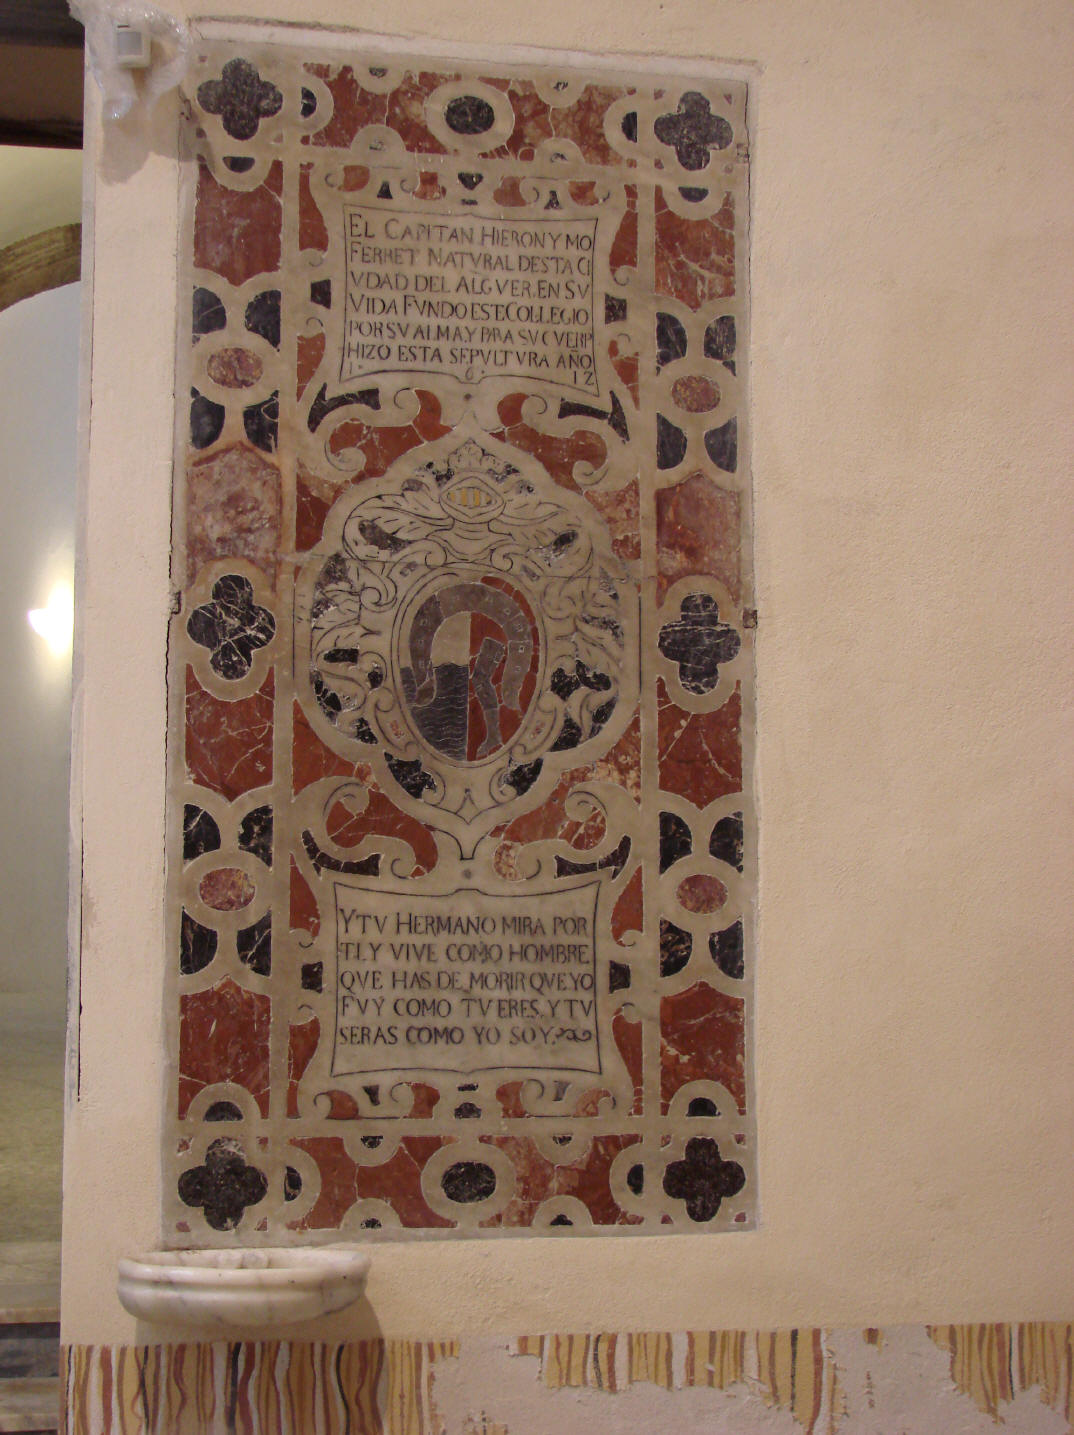 EL CAPITAN HIERONYMO
FERRET NATVRAL DESTA CI
VDAD DEL ALGVER. EN SV
VIDA FVNDO ESTE COLLEGIO
POR SV ALMA. Y PARA SV CVERP
HIZO ESTA SEPVLTVRA AÑO
1. 6. 12
Y TV HERMANO MIRA POR
TI. Y VIVE COMO HOMBRE
QVE HAS DE MORIR QVE YO
FVY COMO TV ERES. Y TV
SERAS COMO YO SOY.